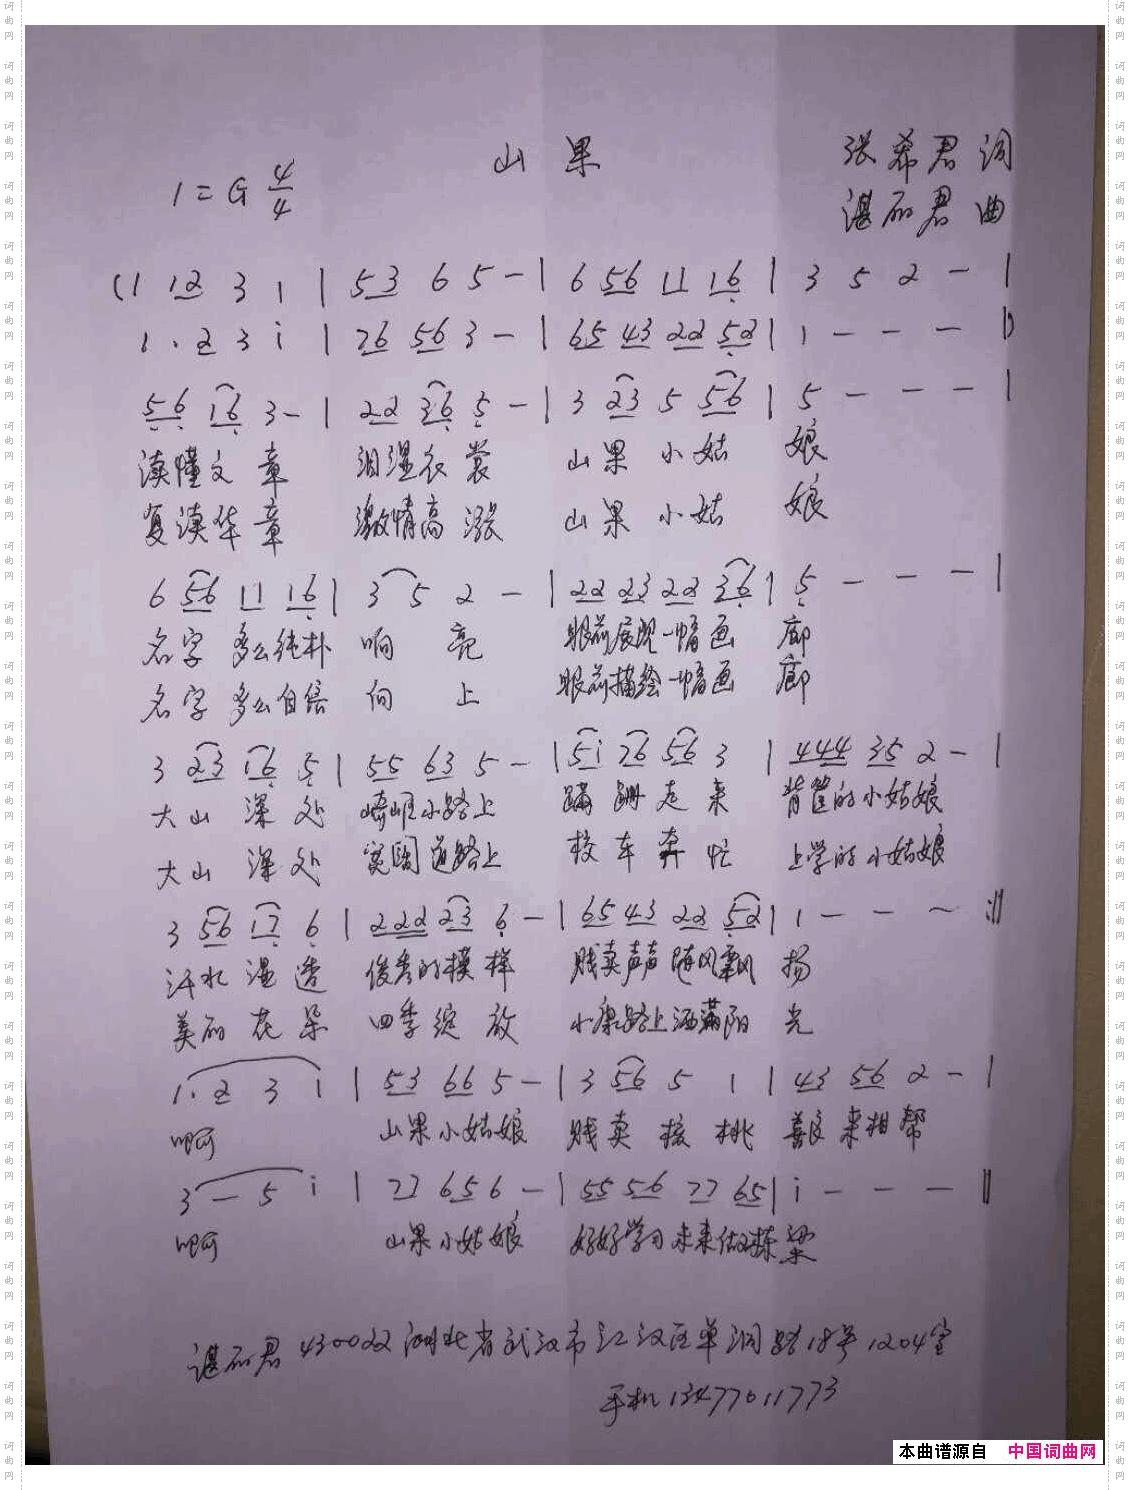 山果
张希君 词
1=G 4/4
谌丽君 曲
(1 12 3 1 | 53 6 5 - | 6 56 11 16 | 3 5 2 - |
1. 2 3 i | 76 56 3 - | 65 43 22 52 | 1 - - - |)
56 16 3 - | 22 36 5 - | 3 23 5 56 | 5 - - - |
读懂文章 泪湿衣裳 山果小姑娘
复读华章 激情高涨 山果小姑娘
6 56 11 16 | 3 5 2 - | 22 23 22 36 | 5 - - - |
名字多么纯朴响亮 眼前展现一幅画廊
名字多么自信向上 眼前描绘一幅画廊
3 23 16 5 | 55 63 5 - | 5i 76 56 3 | 444 35 2 - |
大山深处 崎岖小路上 蹒跚走来 背篓的小姑娘
大山深处 宽阔道路上 校车奔忙 上学的小姑娘
3 56 17 6 | 222 23 6 - | 65 43 22 52 | 1 - - - :||
汗水湿透 俊秀的模样 贱卖声声随风飘扬
美丽花朵 四季绽放 小康路上洒满阳光
1. 2 3 i | 53 66 5 - | 3 56 5 1 | 43 56 2 - |
啊 山果小姑娘 贱卖核桃 善良来相帮
3 - 5 i | 77 65 6 - | 55 56 77 65 | i - - - ||
啊 山果小姑娘 好好学习未来做栋梁
谌丽君 430022 湖北省武汉市江汉区单洞路18号1204室
手机 13477011773
本曲谱源自 中国词曲网